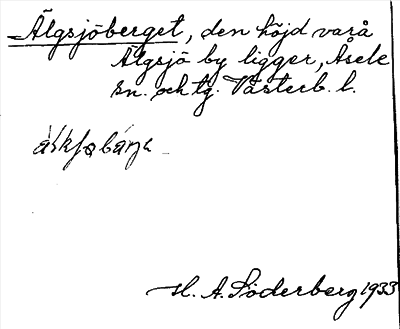 Älgsjöberget, den höjd varå
Älgsjö by ligger, Åsele
sn. och tg. Västerb. l.
H. A. Söderberg 1933